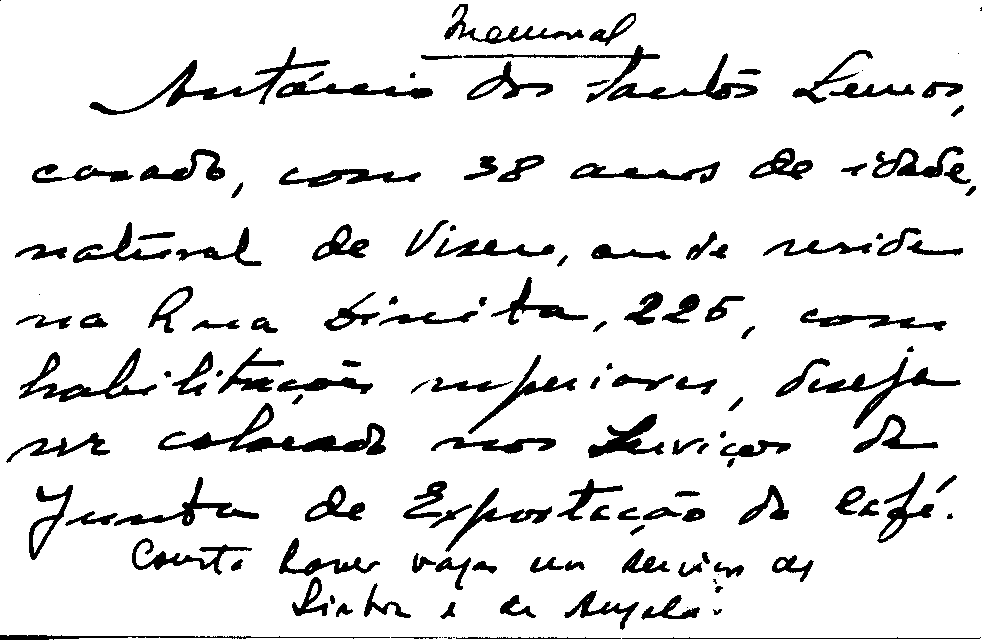 Memorial
António dos Santos Lemos,
casado, com 38 anos de idade,
natural de Viseu, onde reside
na Rua Direita, 225, com
habilitações superiores, deseja
ser colocado nos Serviços da
Junta de Exportação do Café.
Consta haver vagas nos serviços de
Lisboa e de Angola.